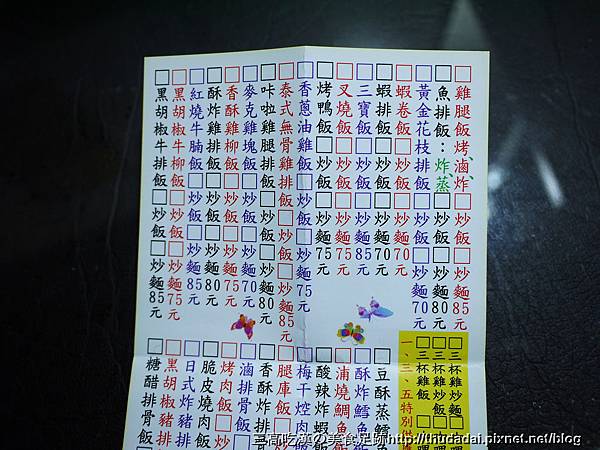 □雞腿飯烤、滷、炸□炒飯□炒麵85元
□魚排飯：炸、蒸□炒飯□炒麵80元
□黃金花枝排飯□炒飯□炒麵70元
□蝦卷飯□炒飯□炒麵70元
□蝦排飯□炒飯□炒麵70元
□三寶飯□炒飯□炒麵85元
□叉燒飯□炒飯□炒麵75元
□烤鴨飯□炒飯□炒麵75元
□香蔥油雞飯□炒飯□炒麵75元
□泰式無骨雞排飯□炒飯□炒麵85元
□咔啦雞腿排飯□炒飯□炒麵80元
□麥克雞塊飯□炒飯□炒麵70元
□香酥雞柳飯□炒飯□炒麵75元
□酥炸雞排飯□炒飯□炒麵80元
□紅燒牛腩飯□炒飯□炒麵85元
□黑胡椒牛柳飯□炒飯□炒麵75元
□黑胡椒牛排飯□炒飯□炒麵85元
□三杯雞炒麵
□三杯雞炒飯
□三杯雞飯
一、三、五特別供
□豆酥蒸鱈
□酥炸鱈魚
□浦燒鯛魚
□酸辣炸蝦
□梅干焢肉
□腿庫飯
□香酥炸排
□滷排骨飯
□烤肉飯□炒
□脆皮燒肉飯
□日式炸豬排
□黑胡椒豬排
□糖醋排骨飯
三高吃凝の美食足跡http://thudadai.pixnet.net/blog